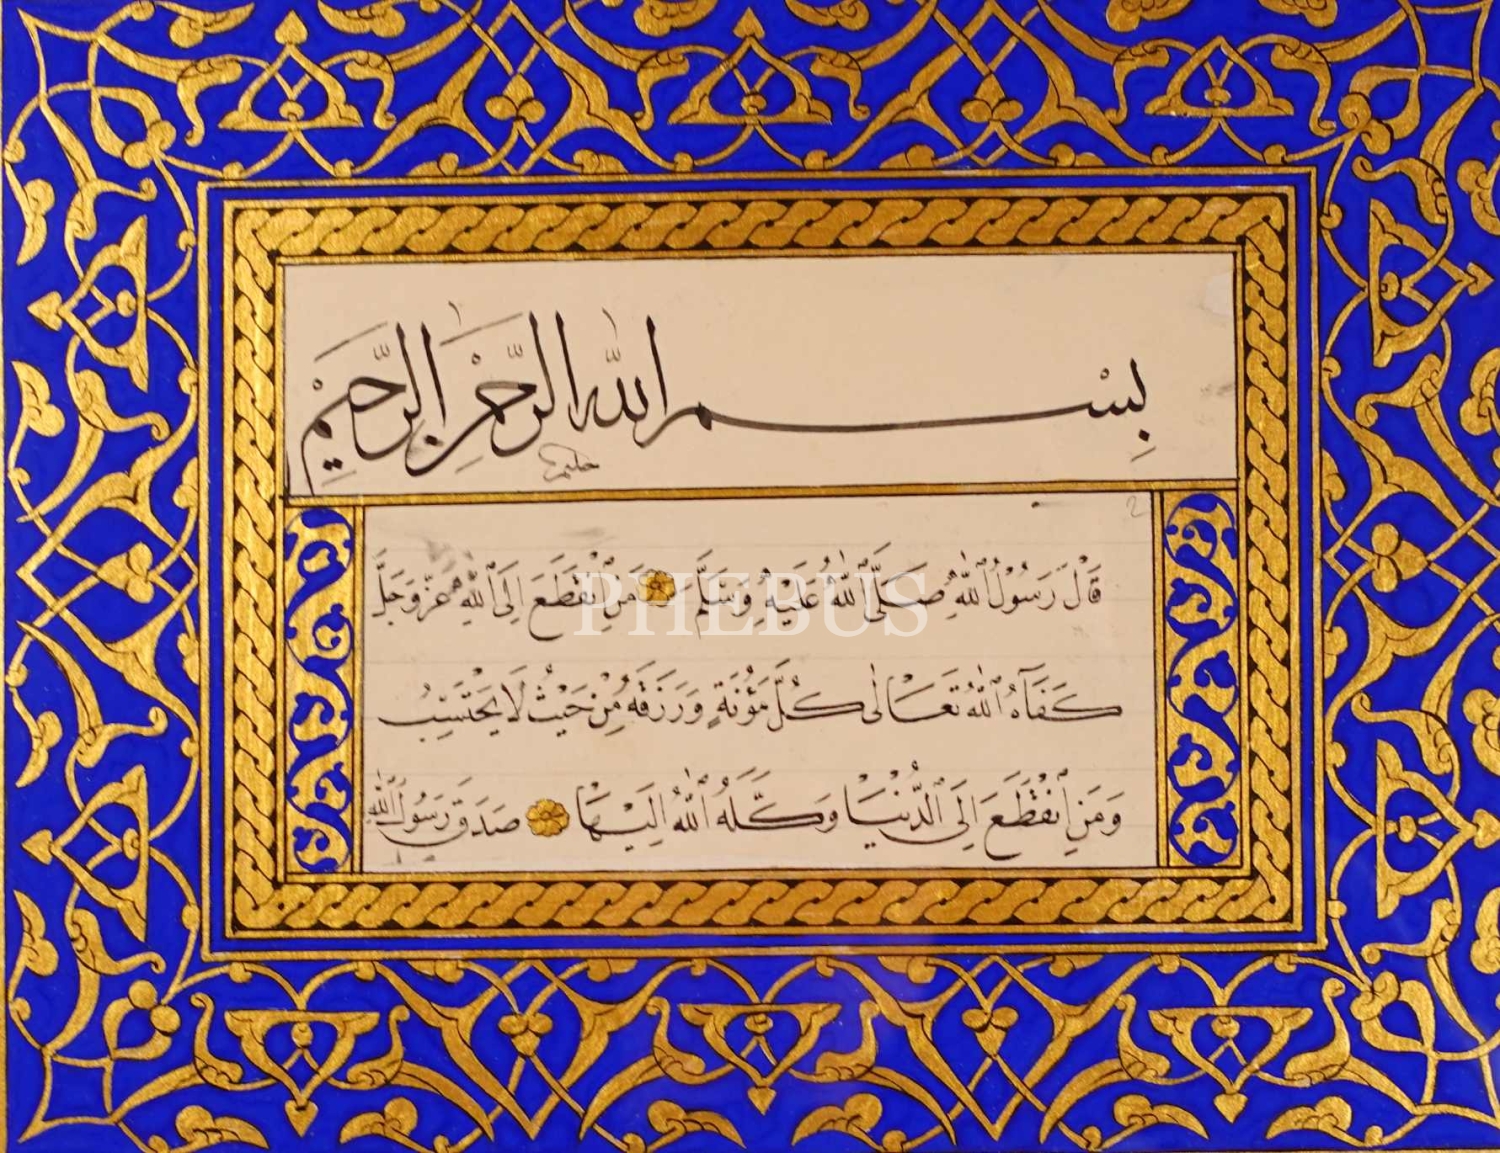 بِسْمِ اللهِ الرَّحْمٰنِ الرَّحِيْمِ
حليم
قَالَ رَسُوْلُ اللهِ صَلَّى اللهُ عَلَيْهِ وَسَلَّمَ مَنِ انْقَطَعَ اِلَى اللهِ عَزَّ وَجَلَّ
PHEBUS
كَفَاهُ اللهُ تَعَالٰى كُلَّ مَؤُنَةٍ وَرَزَقَهُ مِنْ حَيْثُ لَا يَحْتَسِبُ
وَمَنِ انْقَطَعَ اِلَى الدُّنْيَا وَكَّلَهُ اللهُ اِلَيْهَا صَدَقَ رَسُوْلُ اللهِ